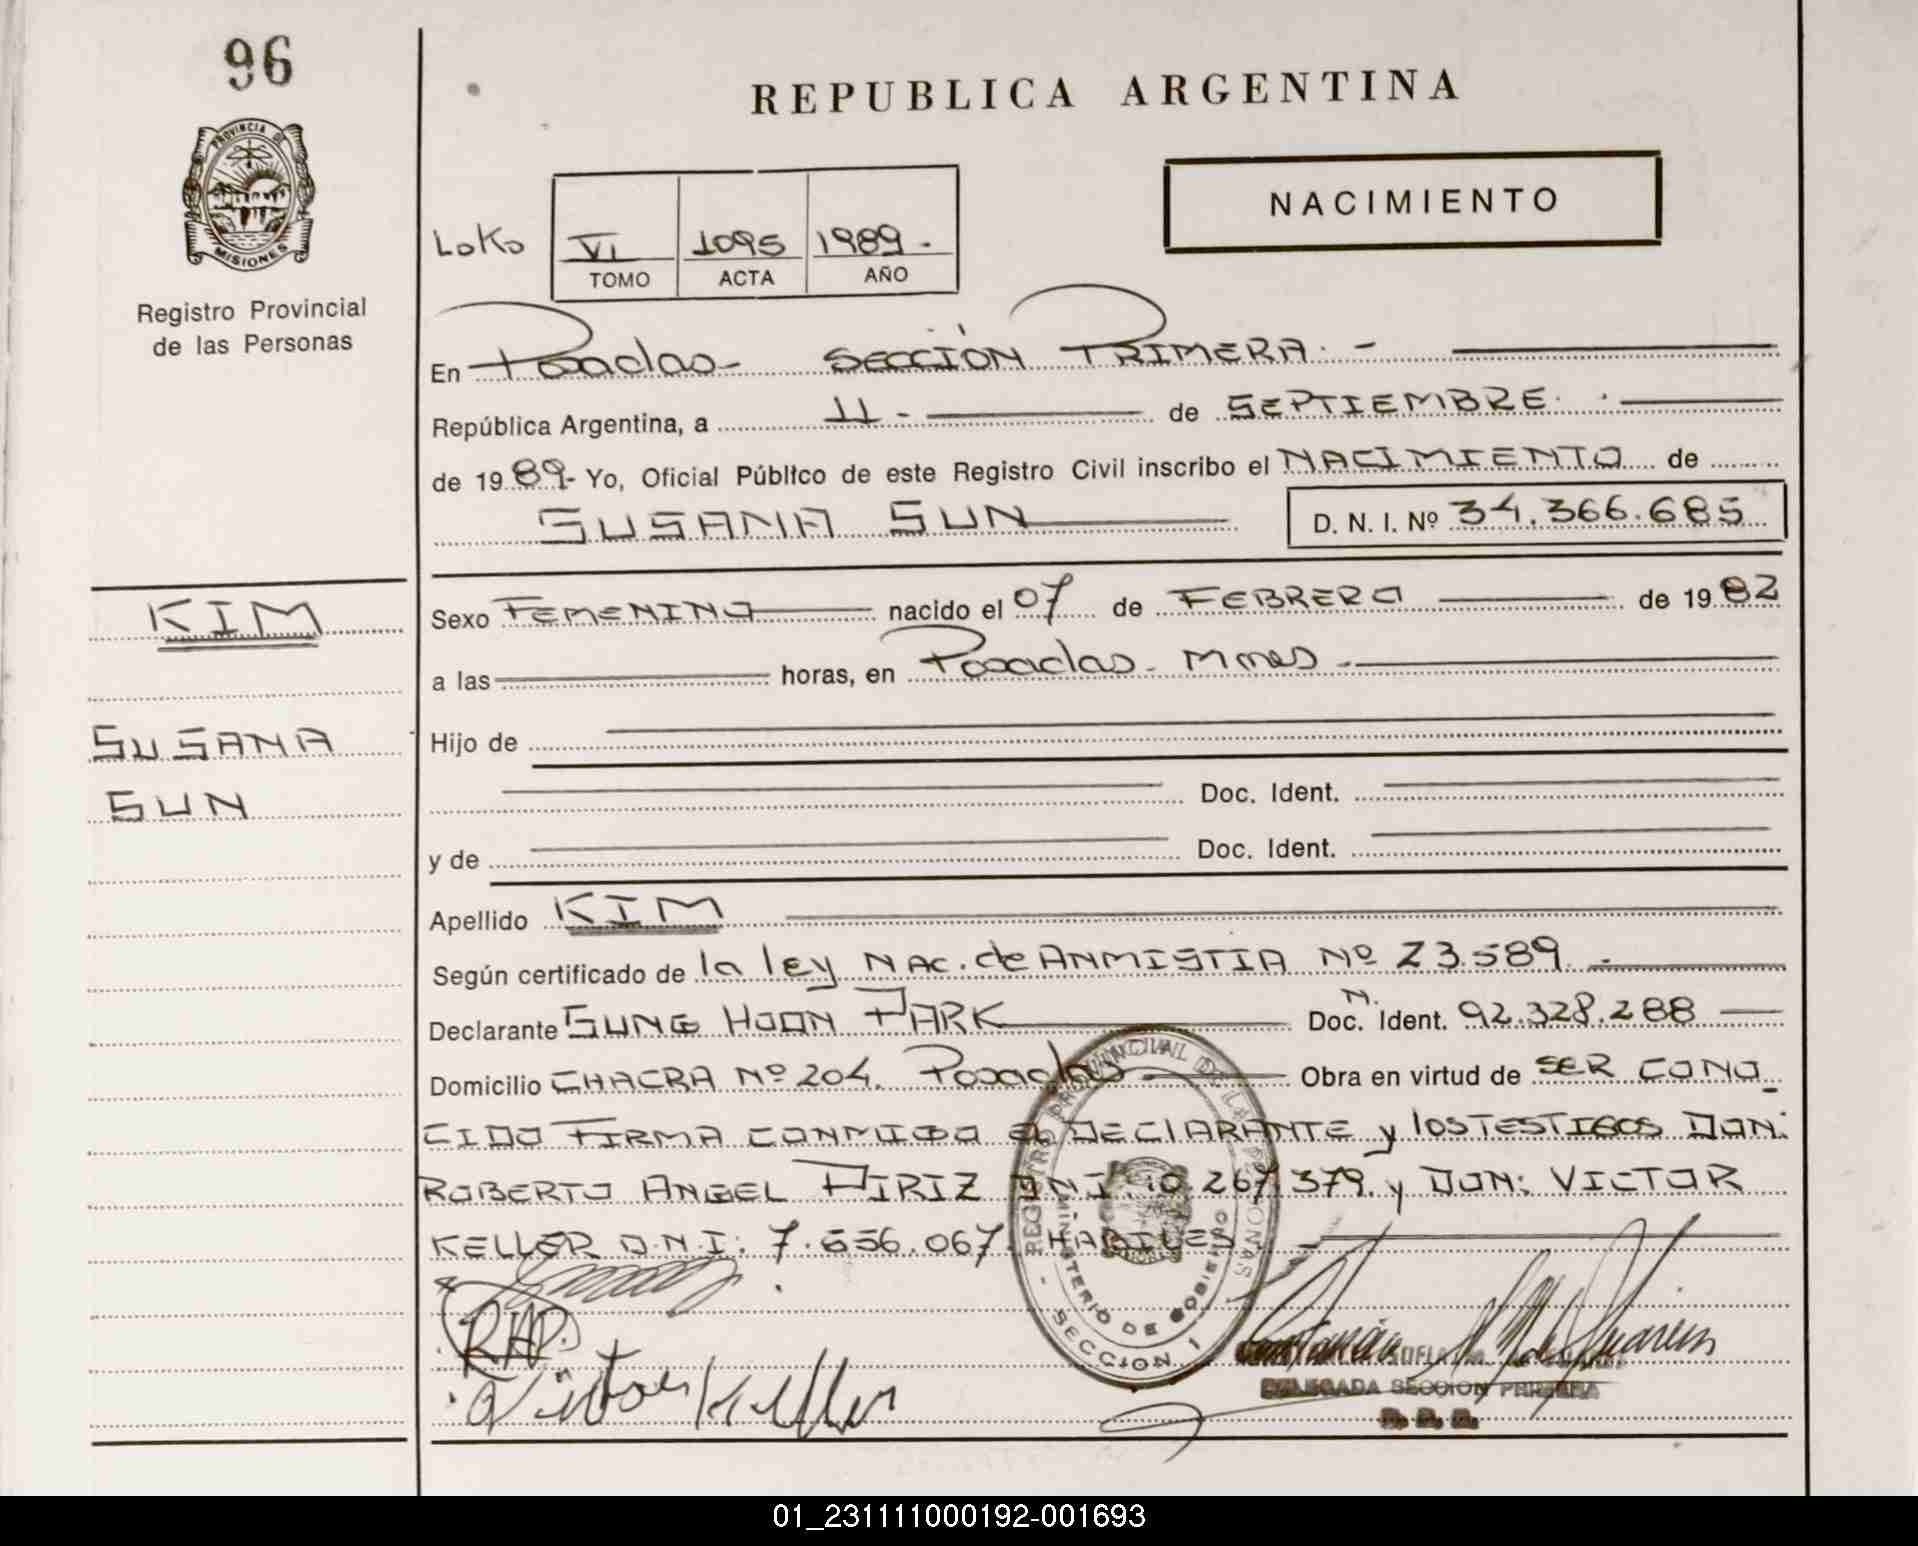 96
REPUBLICA ARGENTINA
PROVINCIA DE
MISIONES
Registro Provincial
de las Personas
NACIMIENTO
LoKo VI 1095 1989.
TOMO ACTA AÑO
En Posadas - SECCIÓN PRIMERA. -
República Argentina, a 11 - de SEPTIEMBRE.
de 1989- Yo, Oficial Público de este Registro Civil inscribo el NACIMIENTO de
SUSANA SUN D. N. I. Nº 34.366.685
KIM
SUSANA
SUN
Sexo FEMENINO nacido el 07 de FEBRERO de 1982
a las horas, en Posadas - Mnes -
Hijo de
Doc. Ident.
y de Doc. Ident.
Apellido KIM
Según certificado de la ley NAC. de ANMISTIA Nº 23.589. -
Declarante SUNG HOON PARK Doc. N. Ident. 92.328.288
Domicilio CHACRA Nº 204. Posadas Obra en virtud de SER CONO_
CIDO FIRMA CONMIGO EL DECLARANTE y los TESTIGOS DON:
ROBERTO ANGEL PIRIZ DNI. 10.267.379. y DON: VICTOR
KELLER D.N.I: 7.656.067. HABILES
REGISTRO PROVINCIAL DE LAS PERSONAS
MINISTERIO DE GOBIERNO
SECCION 1
RAP.
Victor Keller
DELEGADA SECCION PRIMERA
01_231111000192-001693